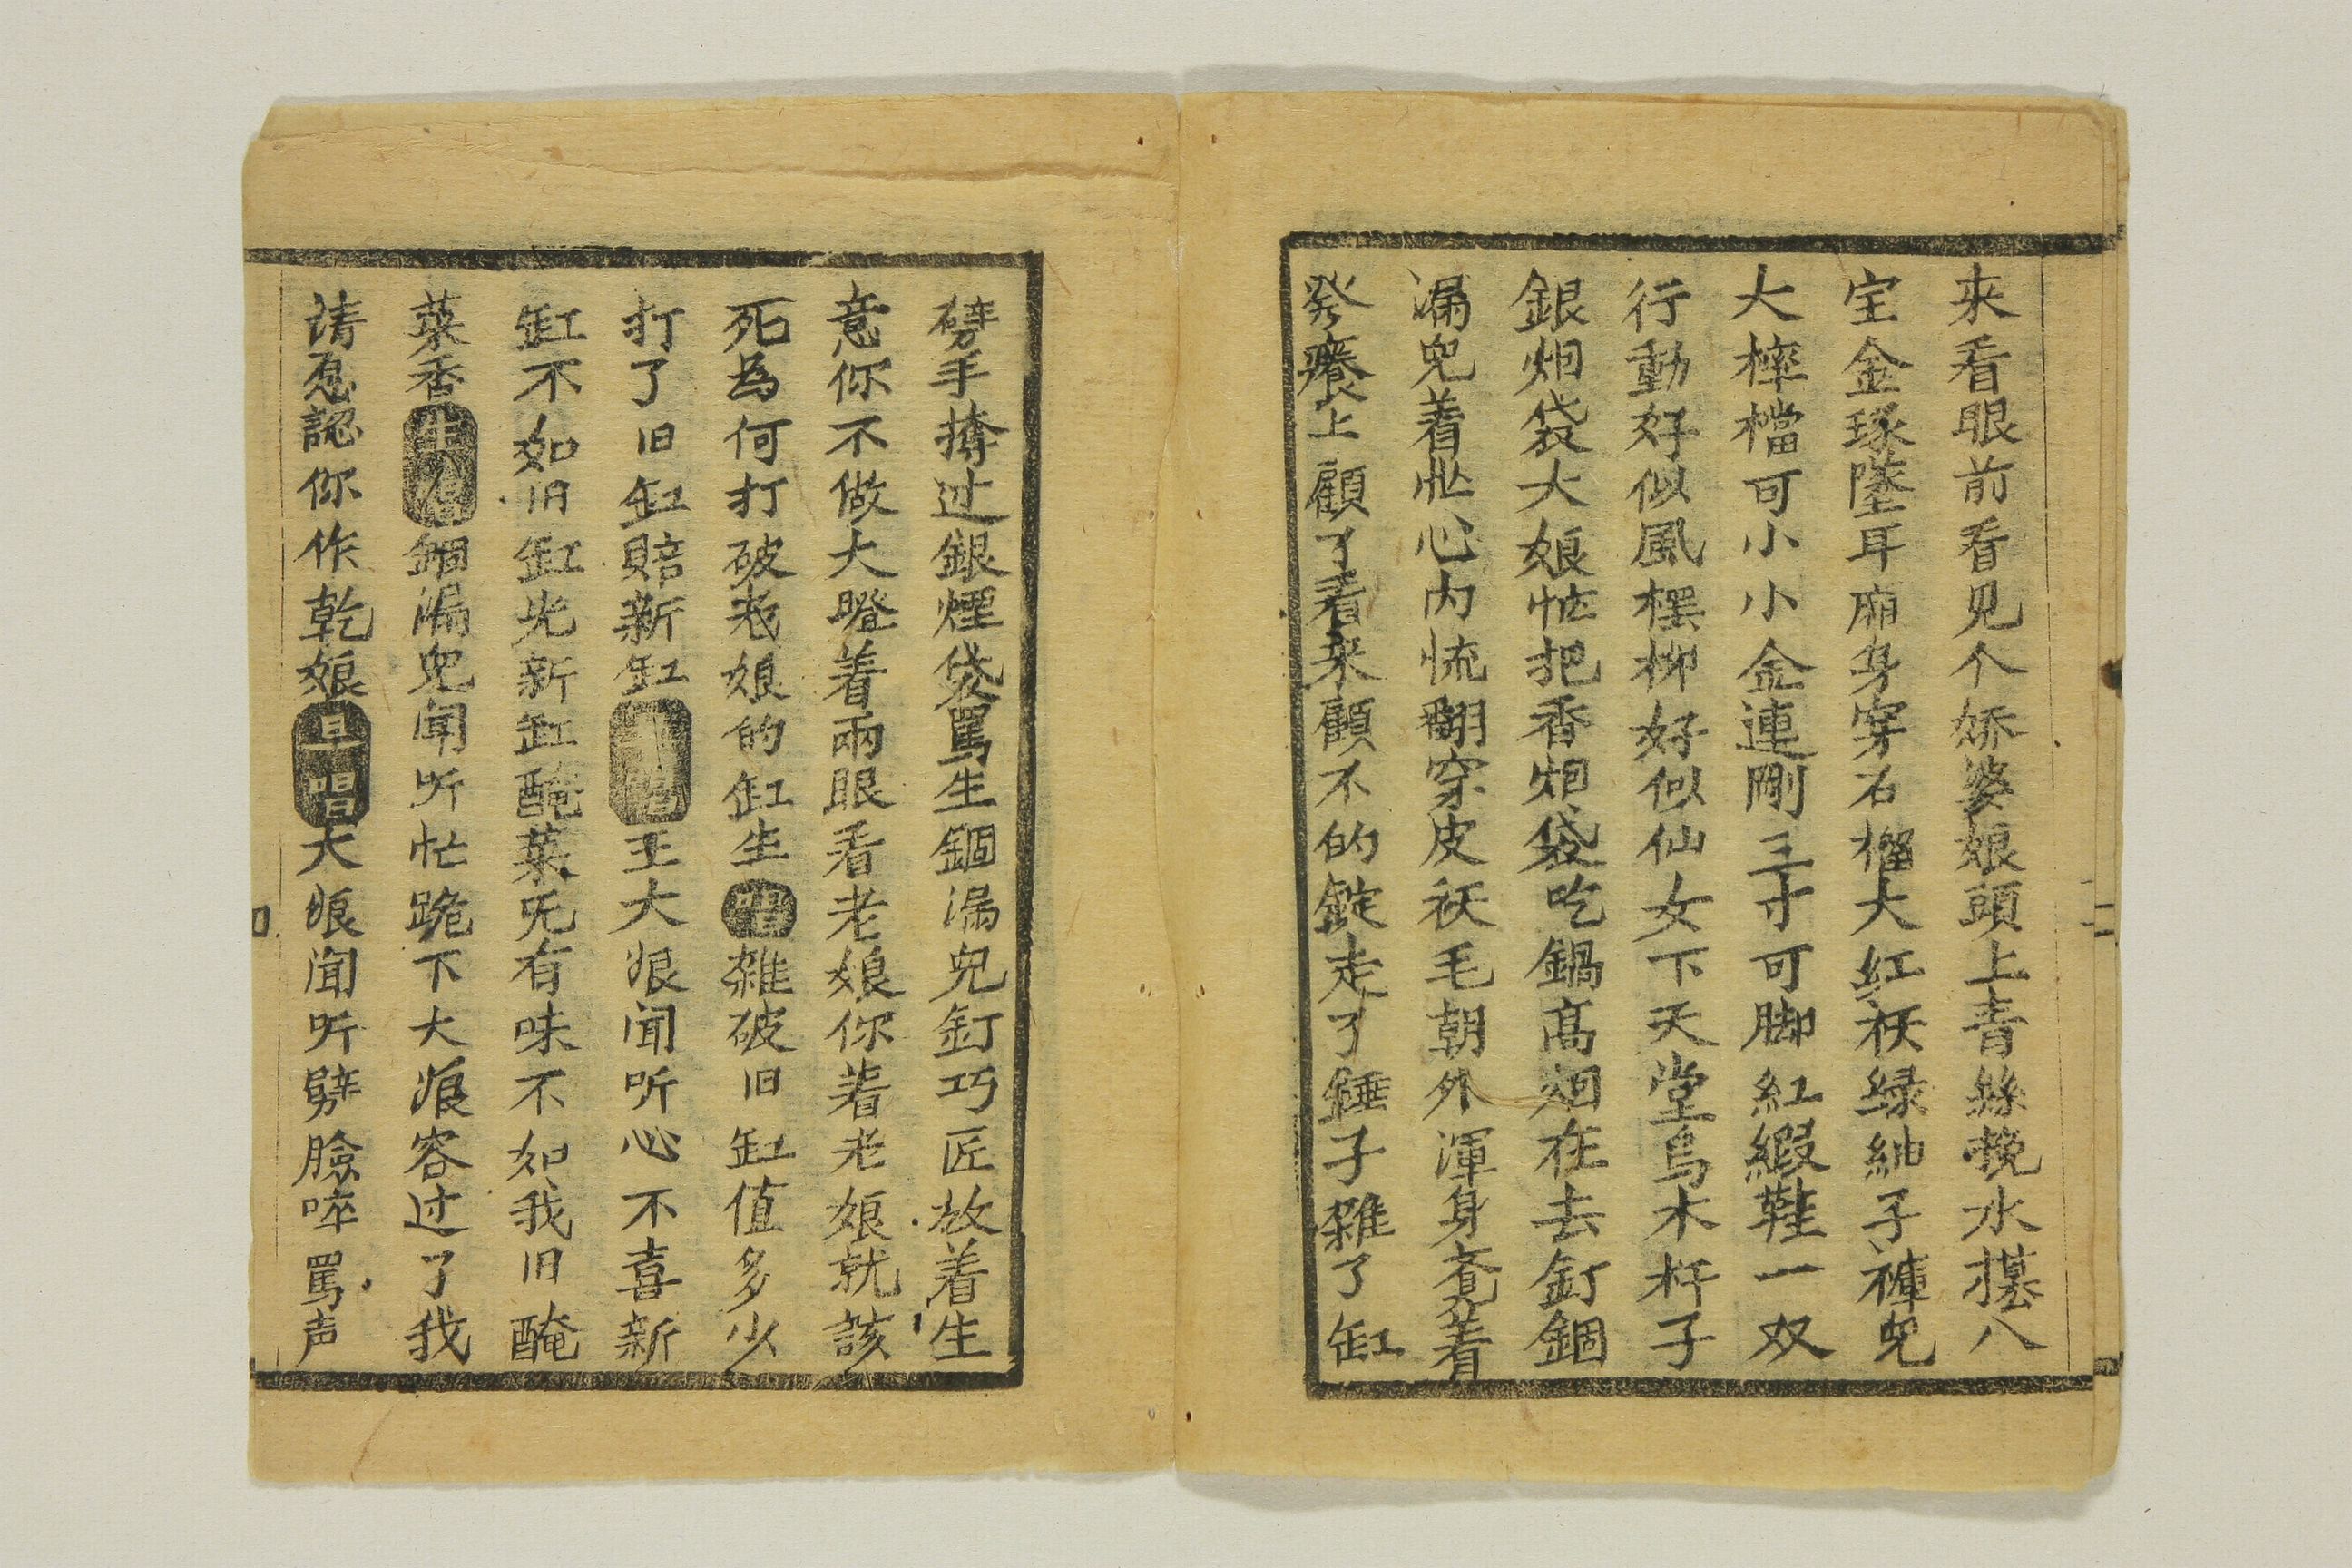 來看眼前看见个娇婆娘頭上青絲挽水㩇八
宝金琢墜耳廂身穿石榴大红袄绿紬子褲兒
大檡檔可小小金連剛三寸可脚紅緞鞋一双
行動好似風擺柳好似仙女下天堂烏木杆子
銀烟袋大娘怅把香烟袋吃鍋高廻在去釘錮
漏兒着怅心内慌翻穿皮袄毛朝外渾身竟着
發癢上顧了看來顧不的錠走了錘子雜了缸
劈手擄过銀煙袋罵生錮漏兒釘巧匠放着生
意你不做大瞪着兩眼看老娘你若老娘就該
死為何打破老娘的缸生唱雜破旧缸值多少
打了旧缸賠新缸王大娘闻听心不喜新
缸不如旧缸光新缸醃菜旡有味不如我旧醃
菜香錮漏兒闻听忙跪下大娘容过了我
请忍認你作乾娘旦唱大娘闻听劈臉啐罵声
二